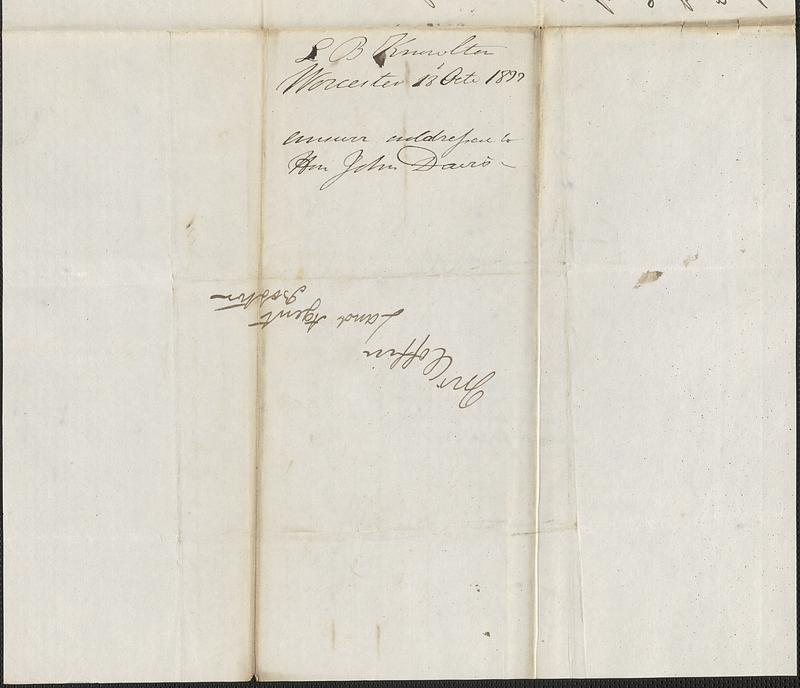 L B Knowlton
Worcester 18 Octr
answer addressed to
Hon John Davis
Mr Coffin
Land Agent
Boston